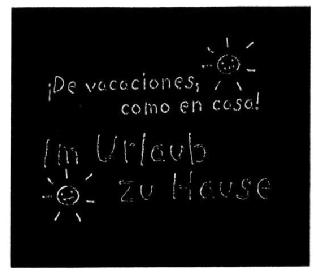 ¡De vacaciones,
como en casa!
Im Urlaub
zu Hause